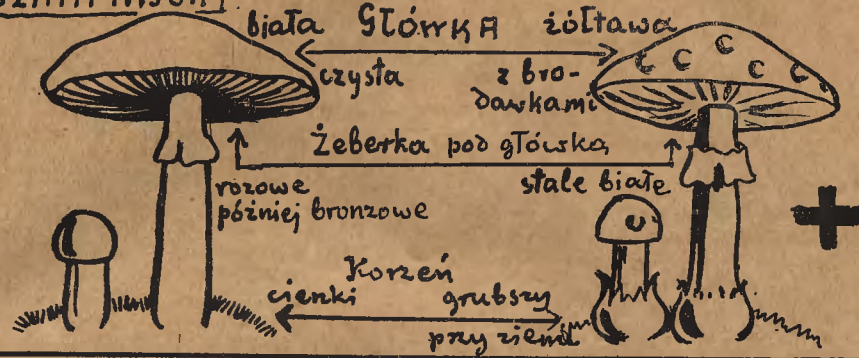 biała GŁÓWKA żółtawa
czysta z bro-
dawkami
Żeberka pod główską
rózowe stale białe
później bronzowe
Korzeń
cienki grubszy
przy ziemi
+